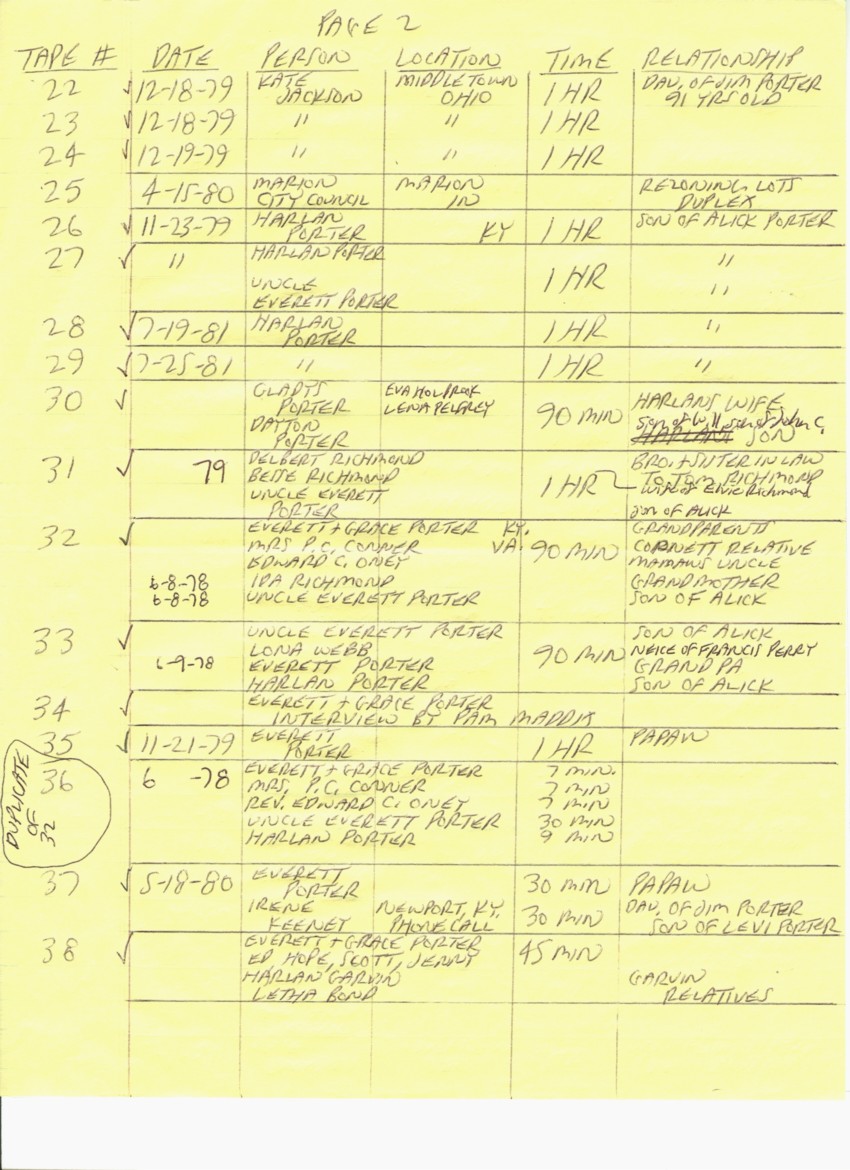 PAGE 2
TAPE # DATE PERSON LOCATION TIME RELATIONSHIP
22 ✓ 12-18-79 KATE MIDDLETOWN 1 HR DAU. OF JIM PORTER
JACKSON OHIO 91 YRS OLD
23 ✓ 12-18-79 " " 1 HR
24 ✓ 12-19-79 " " 1 HR
25 4-15-80 MARION MARION REZONING LOTS
CITY COUNCIL IN DUPLEX
26 ✓ 11-23-79 HARLAN KY 1 HR SON OF ALICK PORTER
PORTER
27 ✓ " HARLAN PORTER 1 HR "
UNCLE "
EVERETT PORTER
28 ✓ 7-19-81 HARLAN 1 HR "
PORTER
29 ✓ 7-25-81 " 1 HR "
30 ✓ GLADYS EVA HOLBROOK 90 MIN HARLANS WIFE
PORTER LENA PELFREY
DAYTON son of Will, son of John C.
PORTER HARLANS SON
31 ✓ 79 DELBERT RICHMOND 1 HR BRO. + SISTER IN LAW
BETTE RICHMOND TO TOM RICHMOND
UNCLE EVERETT wife of Elvie Richmond
PORTER son of ALICK
32 ✓ EVERETT + GRACE PORTER KY. 90 MIN GRANDPARENTS
MRS P.C. CONNER VA. CORNETT RELATIVE
EDWARD C. ONEY MAMAWS UNCLE
6-8-78 IDA RICHMOND GRANDMOTHER
6-8-78 UNCLE EVERETT PORTER SON OF ALICK
33 ✓ UNCLE EVERETT PORTER 90 MIN SON OF ALICK
LONA WEBB NEICE OF FRANCIS PERRY
6-9-78 EVERETT PORTER GRANDPA
HARLAN PORTER SON OF ALICK
34 ✓ EVERETT + GRACE PORTER
INTERVIEW BY PAM MADDIX
35 ✓ 11-21-79 EVERETT 1 HR PAPAW
PORTER
DUPLICATE
OF
32
36 6 -78 EVERETT + GRACE PORTER 7 MIN.
MRS. P.C. CONNER 7 MIN
REV. EDWARD C. ONEY 7 MIN
UNCLE EVERETT PORTER 30 MIN
HARLAN PORTER 9 MIN
37 ✓ 5-18-80 EVERETT 30 MIN PAPAW
PORTER
IRENE NEWPORT, KY. 30 MIN DAU. OF JIM PORTER
KEENEY PHONE CALL SON OF LEVI PORTER
38 ✓ EVERETT + GRACE PORTER 45 MIN
ED, HOPE, SCOTT, JENNY
HARLAN GARVIN GARVIN
LETHA BOND RELATIVES